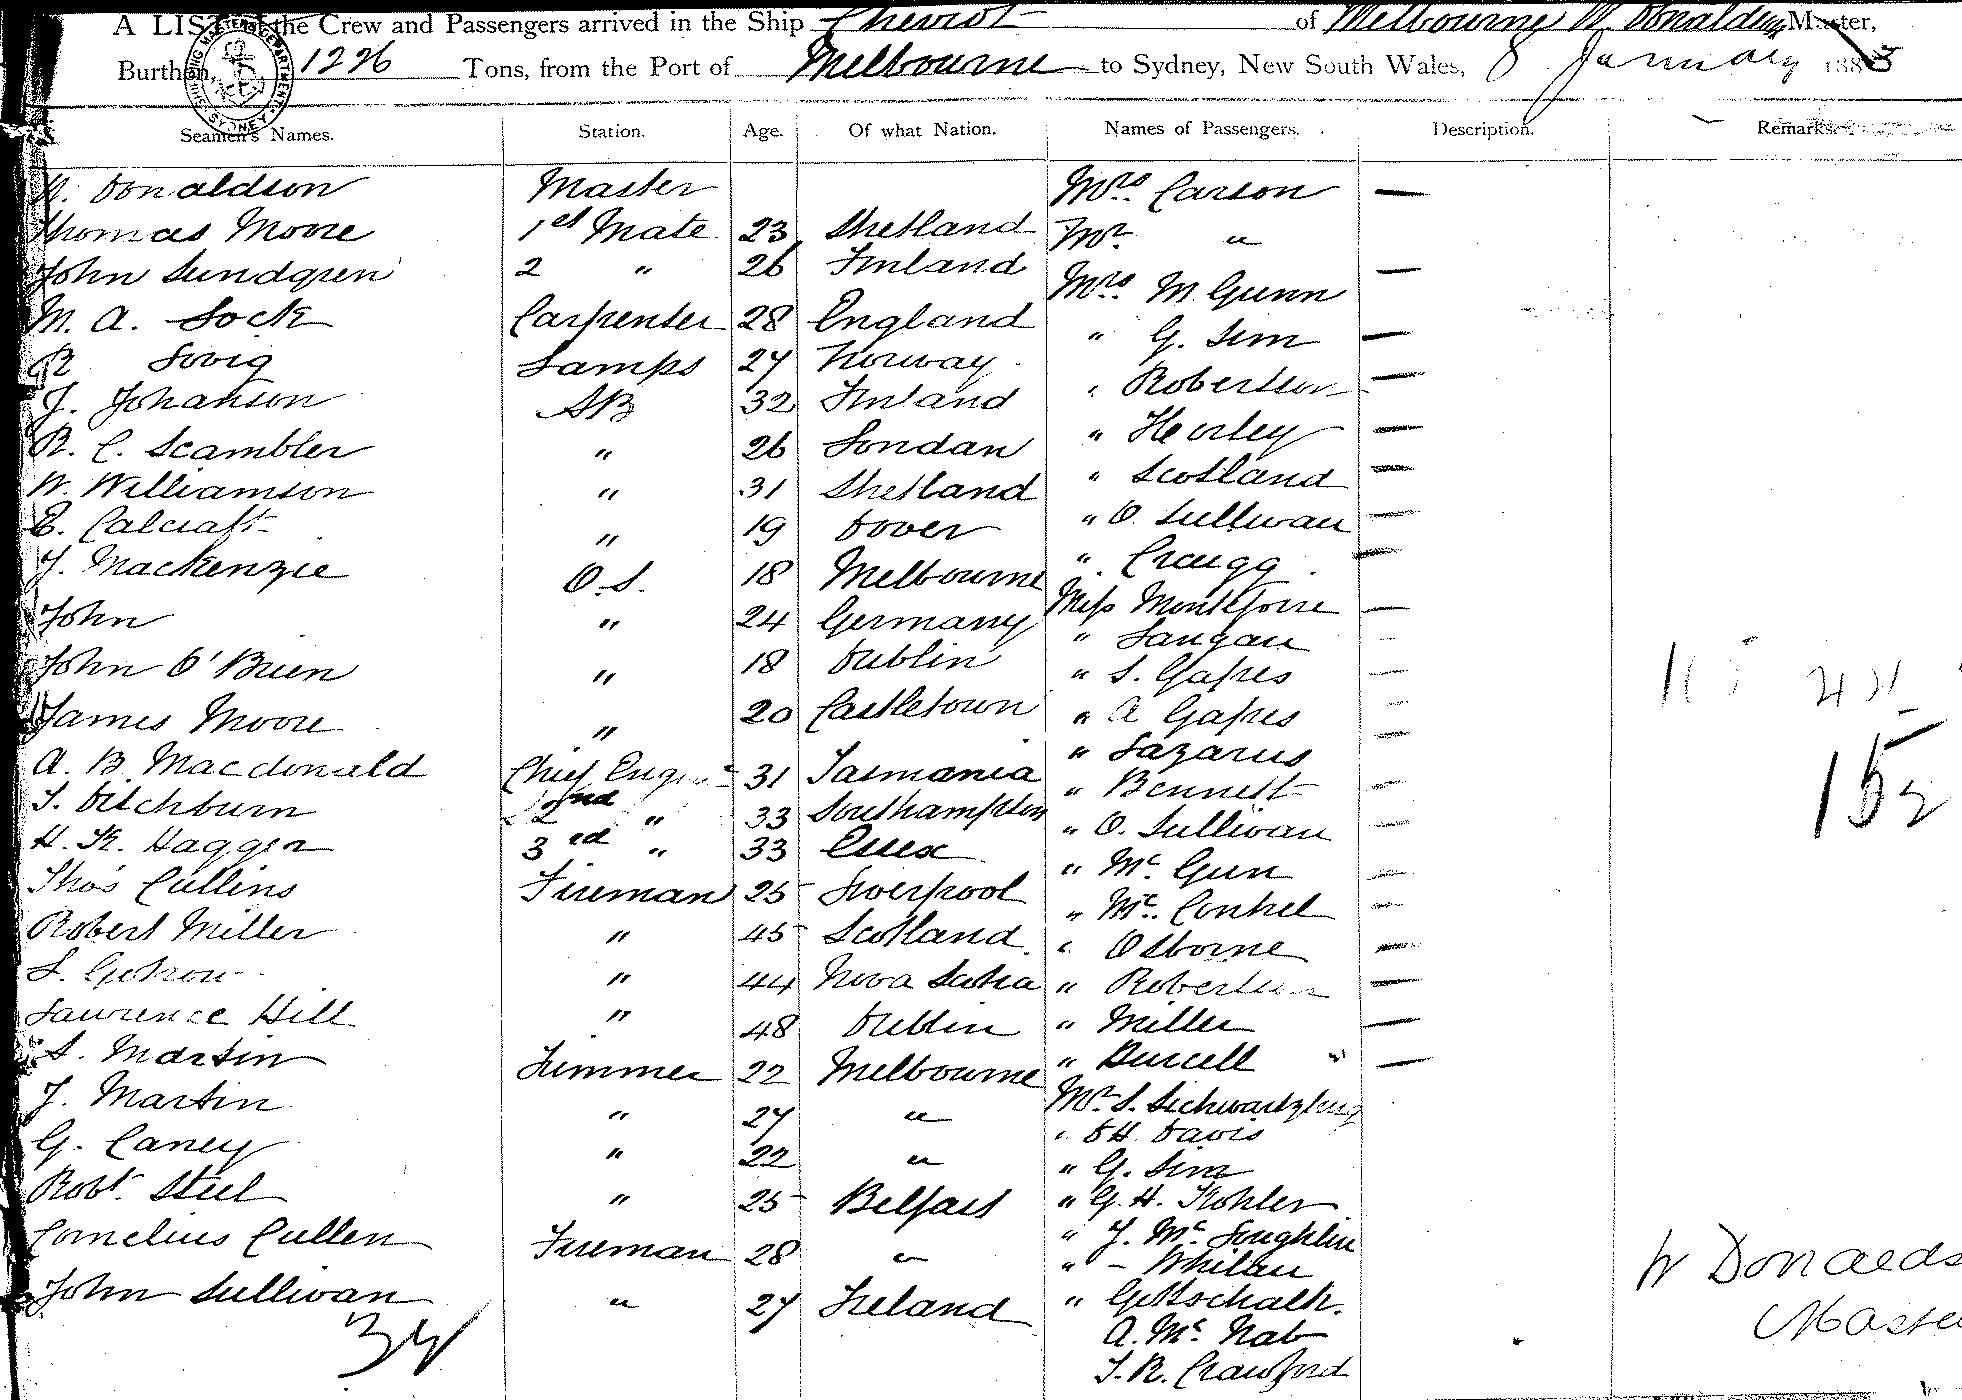 A LIST of the Crew and Passengers arrived in the Ship Cheviot of Melbourne W. Donaldson Master,
Burthen, 1226 Tons, from the Port of Melbourne to Sydney, New South Wales, 8 January 1883
Seamen's Names. Station. Age. Of what Nation. Names of Passengers. Description. Remarks.
W. Donaldson Master Mrs. Carson —
Thomas Moore 1st Mate 23 Shetland Mr. "
John Lundgren 2 " 26 Finland Mrs. M. Gunn —
M. A. Lock Carpenter 28 England " G. Sim —
R Lovig Lamps 27 Norway " Robertson —
J. Johanson AB 32 Finland " Heorley —
R. C. Scambler " 26 Londan " Scotland —
W. Williamson " 31 Shetland " O. Sullivan —
E. Calcraft " 19 Dover " Craugg —
J. Mackenzie O.S. 18 Melbourne Miss Montefiore —
John " 24 Germany " Langan —
John O'Brien " 18 Dublin " S. Gapes —
James Moore " 20 Castletown " A Gapes —
A. B. Macdonald Chief Engr 31 Tasmania " Lazarus —
T. Ditchburn 2nd " 33 Southampton " Bennett —
H. K. Hagger 3rd " 33 Essex " O. Sullivan —
Thos Cullins Fireman 25 Liverpool " Mc. Gun —
Robert Miller " 45 Scotland " Mc. Conhel —
S. " 44 Nova Scotia " Osborne —
Lawrence Hill " 48 Dublin " Robertson —
S. Martin Trimmer 22 Melbourne " Miller —
J. Martin " 27 " " Purcell " —
G. Caney " 22 " Mr. S.
Robt. Steel " 25 Belfast " D H. Davis
Cornelius Cullen Fireman 28 " " G. Sim
John Sullivan " 27 Ireland " G. H. Kohler
" J. Mc. Loughlin
" – Whilan
" Gottschalk.
A. Mc. Nab
T. R. Crawford
34
152
W Donalds
Maste